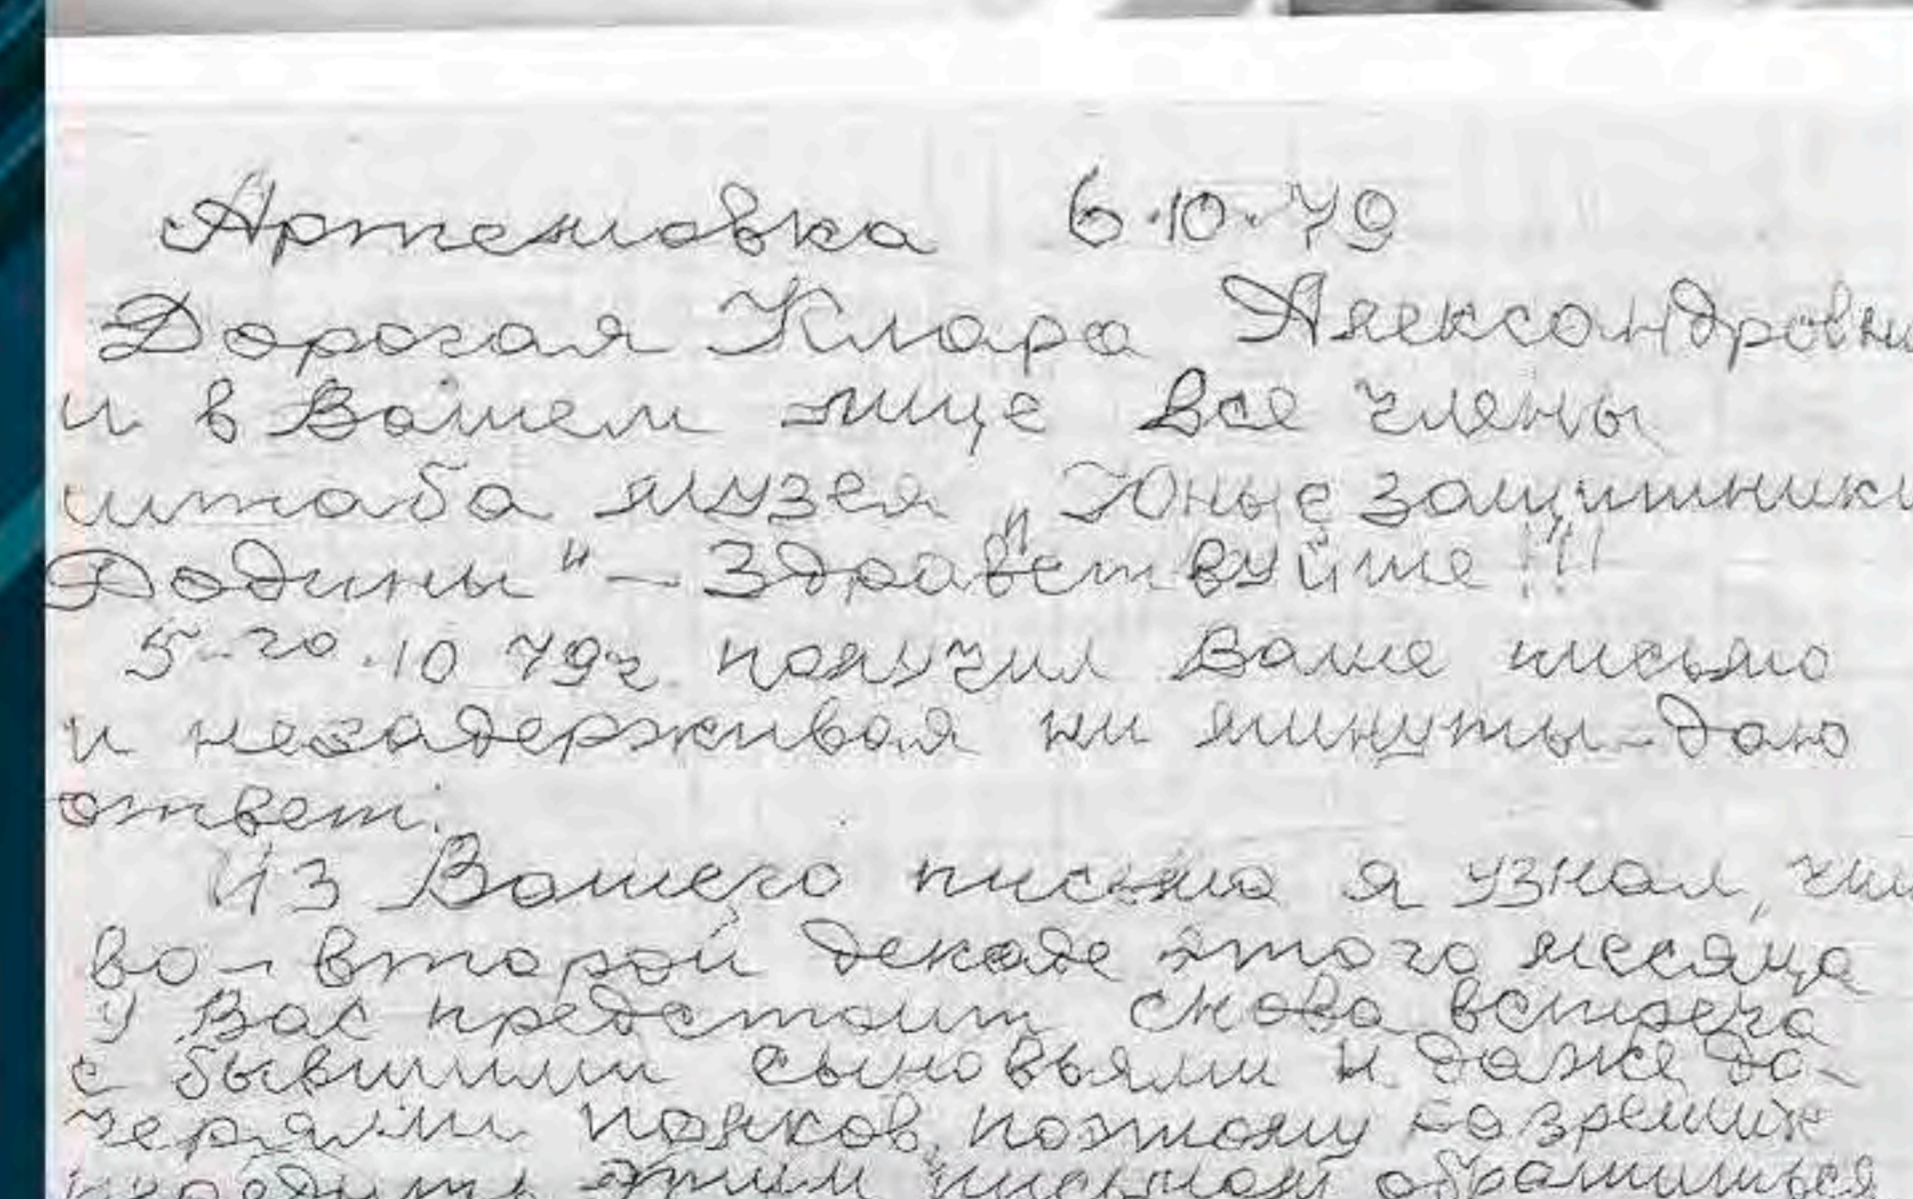 Артемовка 6.10.79
Дорогая Клара Александровн
и в Вашем лице все члены
штаба музея "Юные защитники
Родины" – Здравствуйте!!!
5-го.10 79г. получил Ваше письмо
и незадерживая ни минуты – даю
ответ.
Из Вашего письма я узнал, что
во-второй декаде этого месяца
у Вас предстоит снова встреча
с бывшими сыновьями и даже до-
черями полков, поэтому
этим письмом обратиться